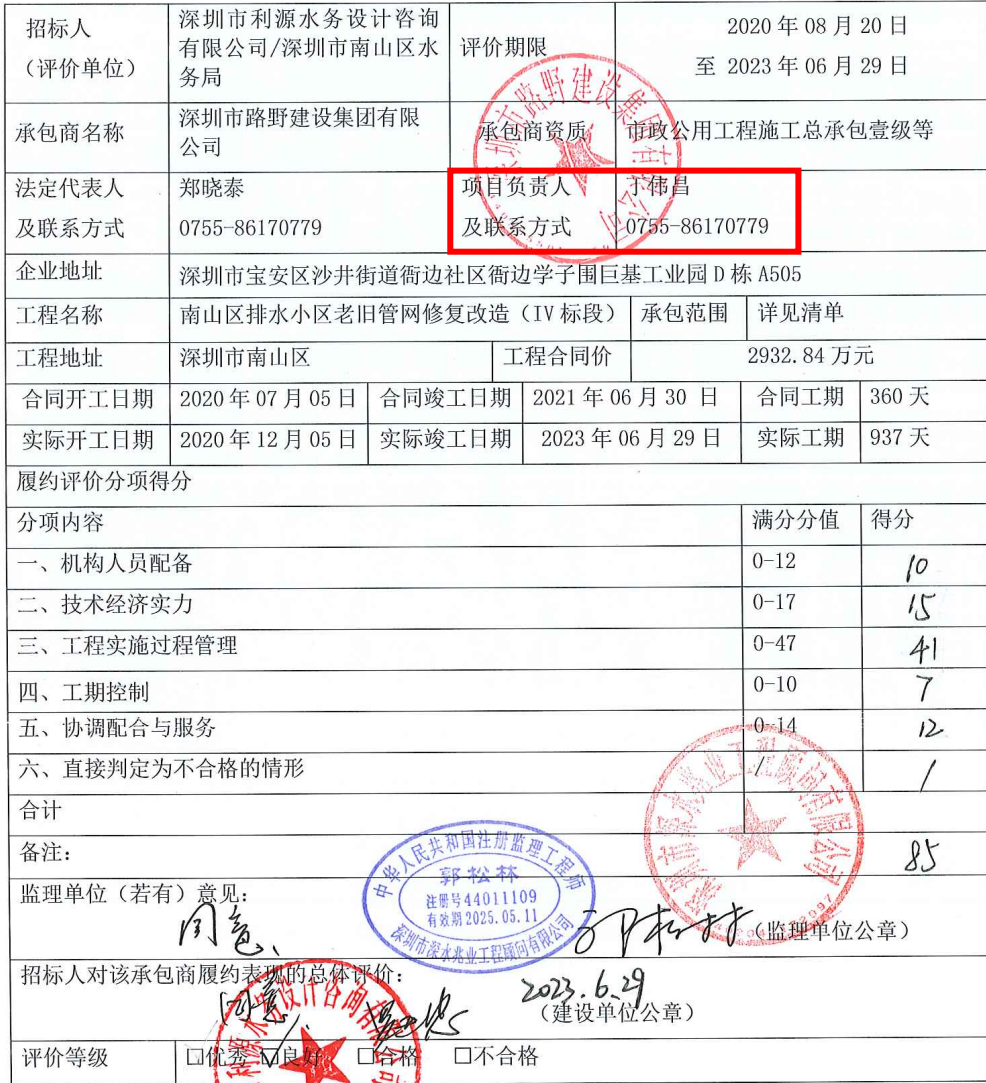 招标人
（评价单位）
深圳市利源水务设计咨询
有限公司/深圳市南山区水
务局
评价期限
2020年08月20日
至 2023年06月29日
承包商名称
深圳市路野建设集团有限
公司
承包商资质
市政公用工程施工总承包壹级等
法定代表人
及联系方式
郑晓泰
0755-86170779
项目负责人
及联系方式
伟昌
0755-86170779
企业地址
深圳市宝安区沙井街道衙边社区衙边学子围巨基工业园D栋A505
工程名称
南山区排水小区老旧管网修复改造（IV标段）
承包范围
详见清单
工程地址
深圳市南山区
工程合同价
2932.84万元
合同开工日期
2020年07月05日
合同竣工日期
2021年06月30日
合同工期
360天
实际开工日期
2020年12月05日
实际竣工日期
2023年06月29日
实际工期
937天
履约评价分项得分
分项内容
满分分值
得分
一、机构人员配备
0-12
10
二、技术经济实力
0-17
15
三、工程实施过程管理
0-47
41
四、工期控制
0-10
7
五、协调配合与服务
0-14
12
六、直接判定为不合格的情形
/
/
合计
备注：
85
监理单位（若有）意见：
同意、
（监理单位公章）
中华人民共和国注册监理工程师
郭松林
注册号44011109
有效期2025.05.11
深圳市深水兆业工程顾问有限公司
招标人对该承包商履约表现的总体评价：
同意
2023.6.29
（建设单位公章）
评价等级
□优秀 ☑良好 □合格 □不合格
深圳市路野建设集团有限公司
深圳市深水兆业工程顾问有限公司
利源水务设计咨询有限公司